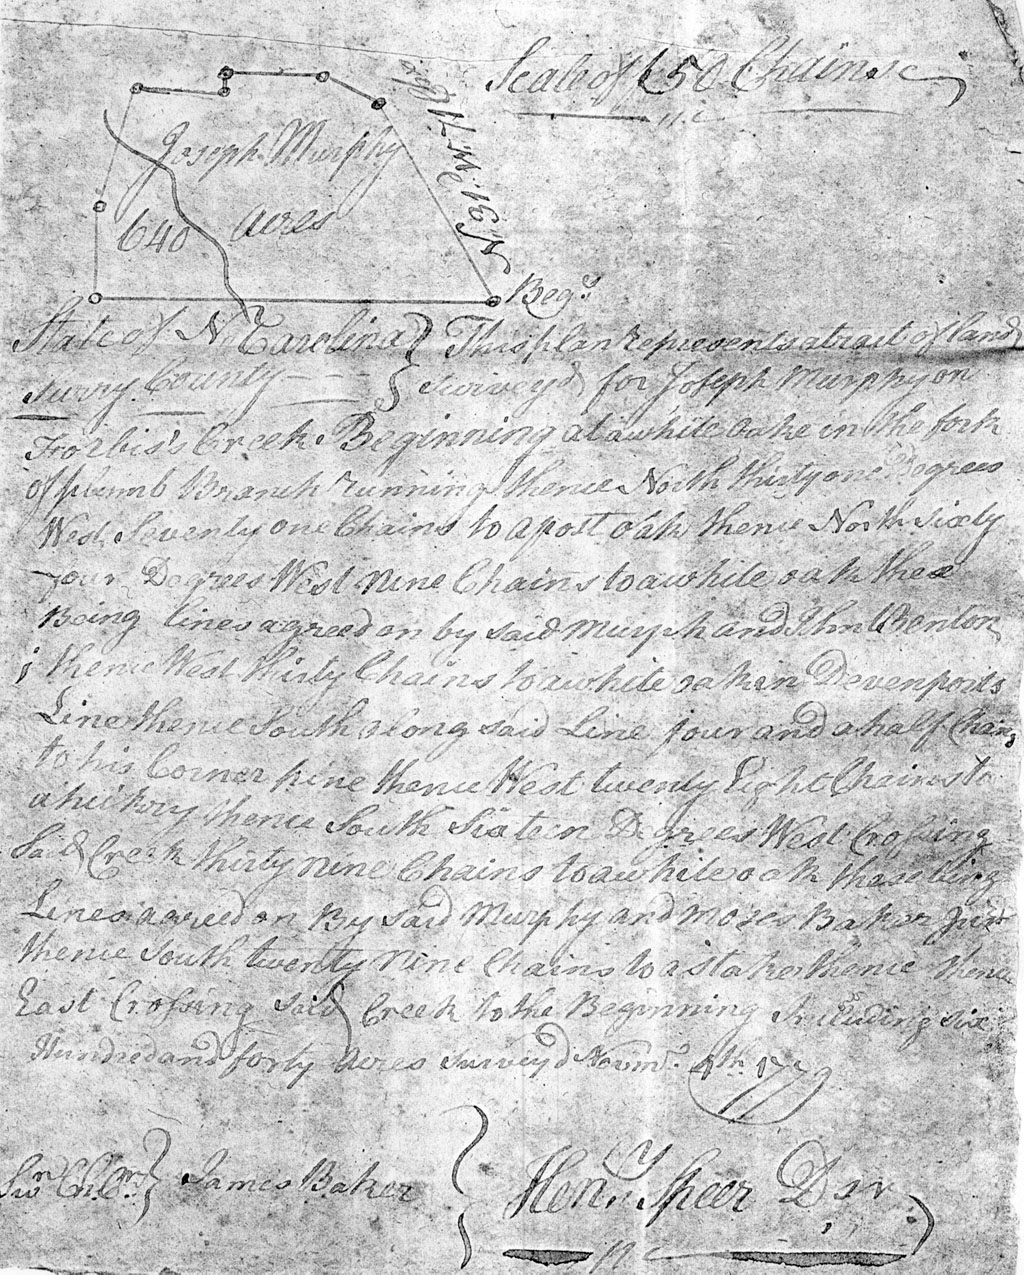 Scale of 50 Chains
Joseph Murphy
640 Acres
N.31.W.71.
Begn.
State of No. Carolina } This plan represents a tract of land
Surry County } Surveyd for Joseph Murphy on
Forbis's Creek Beginning at a white oake in the fork
of plumb Branch running thence North thirty one Degrees
West Seventy one Chains to a post oak thence North sixty
four Degrees West nine Chains to a white oak these
Being lines agreed on by said Murph and John Benton
; thence West thirty Chains to a white oak in Devenports
Line thence South along said Line four and a half Chains
to his Corner pine thence West twenty Eight Chains to
a hickory thence South Sixteen Degrees West Crossing
Said Creek thirty nine Chains to a white oak these being
Lines agreed on By said Murphy and Moses Baker
thence South twenty nine Chains to a stake thence thence
East Crossing said Creek to the Beginning Including six
Hundred and forty Acres survey'd Novmr. 4th 1779
James Baker
Henry Speer D sr